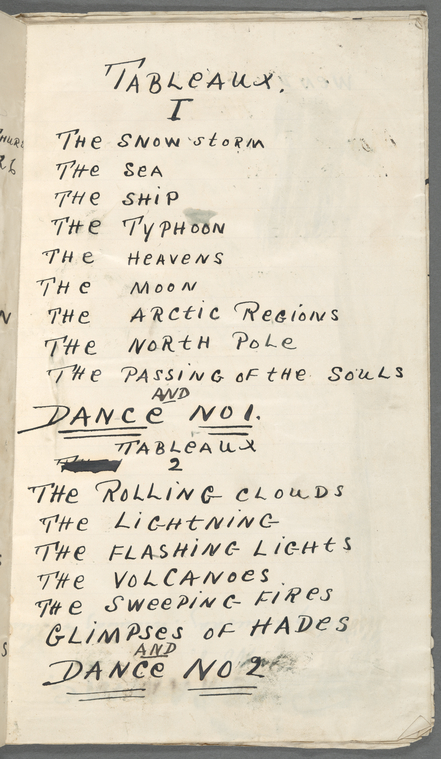 TABLEAUX.
I
THE SNOW STORM
THE SEA
THE SHIP
THE TYPHOON
THE HEAVENS
THE MOON
THE ARCTIC REGIONS
THE NORTH POLE
THE PASSING OF THE SOULS
AND
DANCE NO 1.
TABLEAUX
2
THE ROLLING CLOUDS
THE LIGHTNING
THE FLASHING LIGHTS
THE VOLCANOES.
THE SWEEPING FIRES
GLIMPSES OF HADES
AND
DANCE NO 2